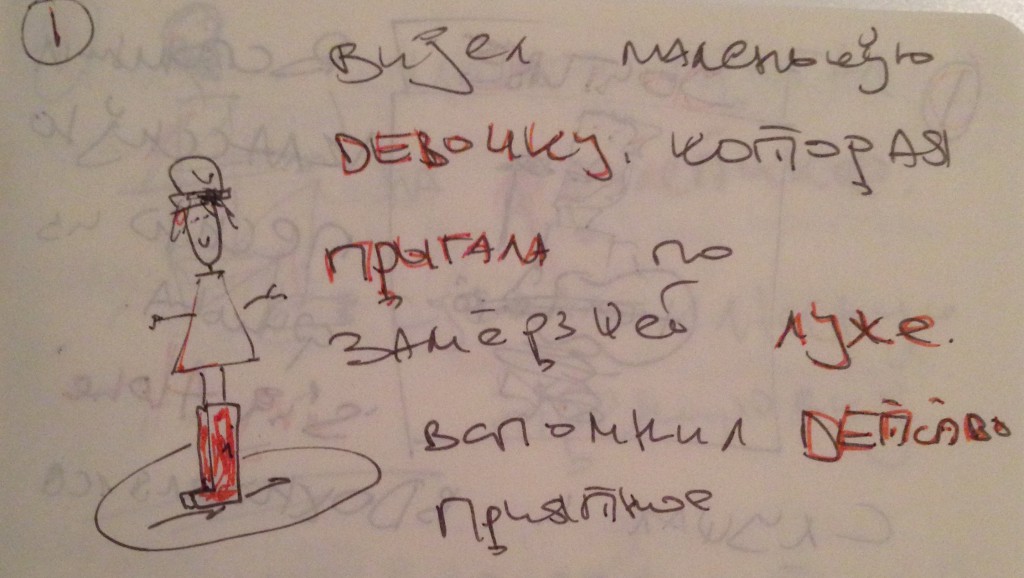 1
видел маленькую
ДЕВОЧКУ. которая
прыгала по
замёрзшей луже.
вспомнил ДЕТСТВО
приятное